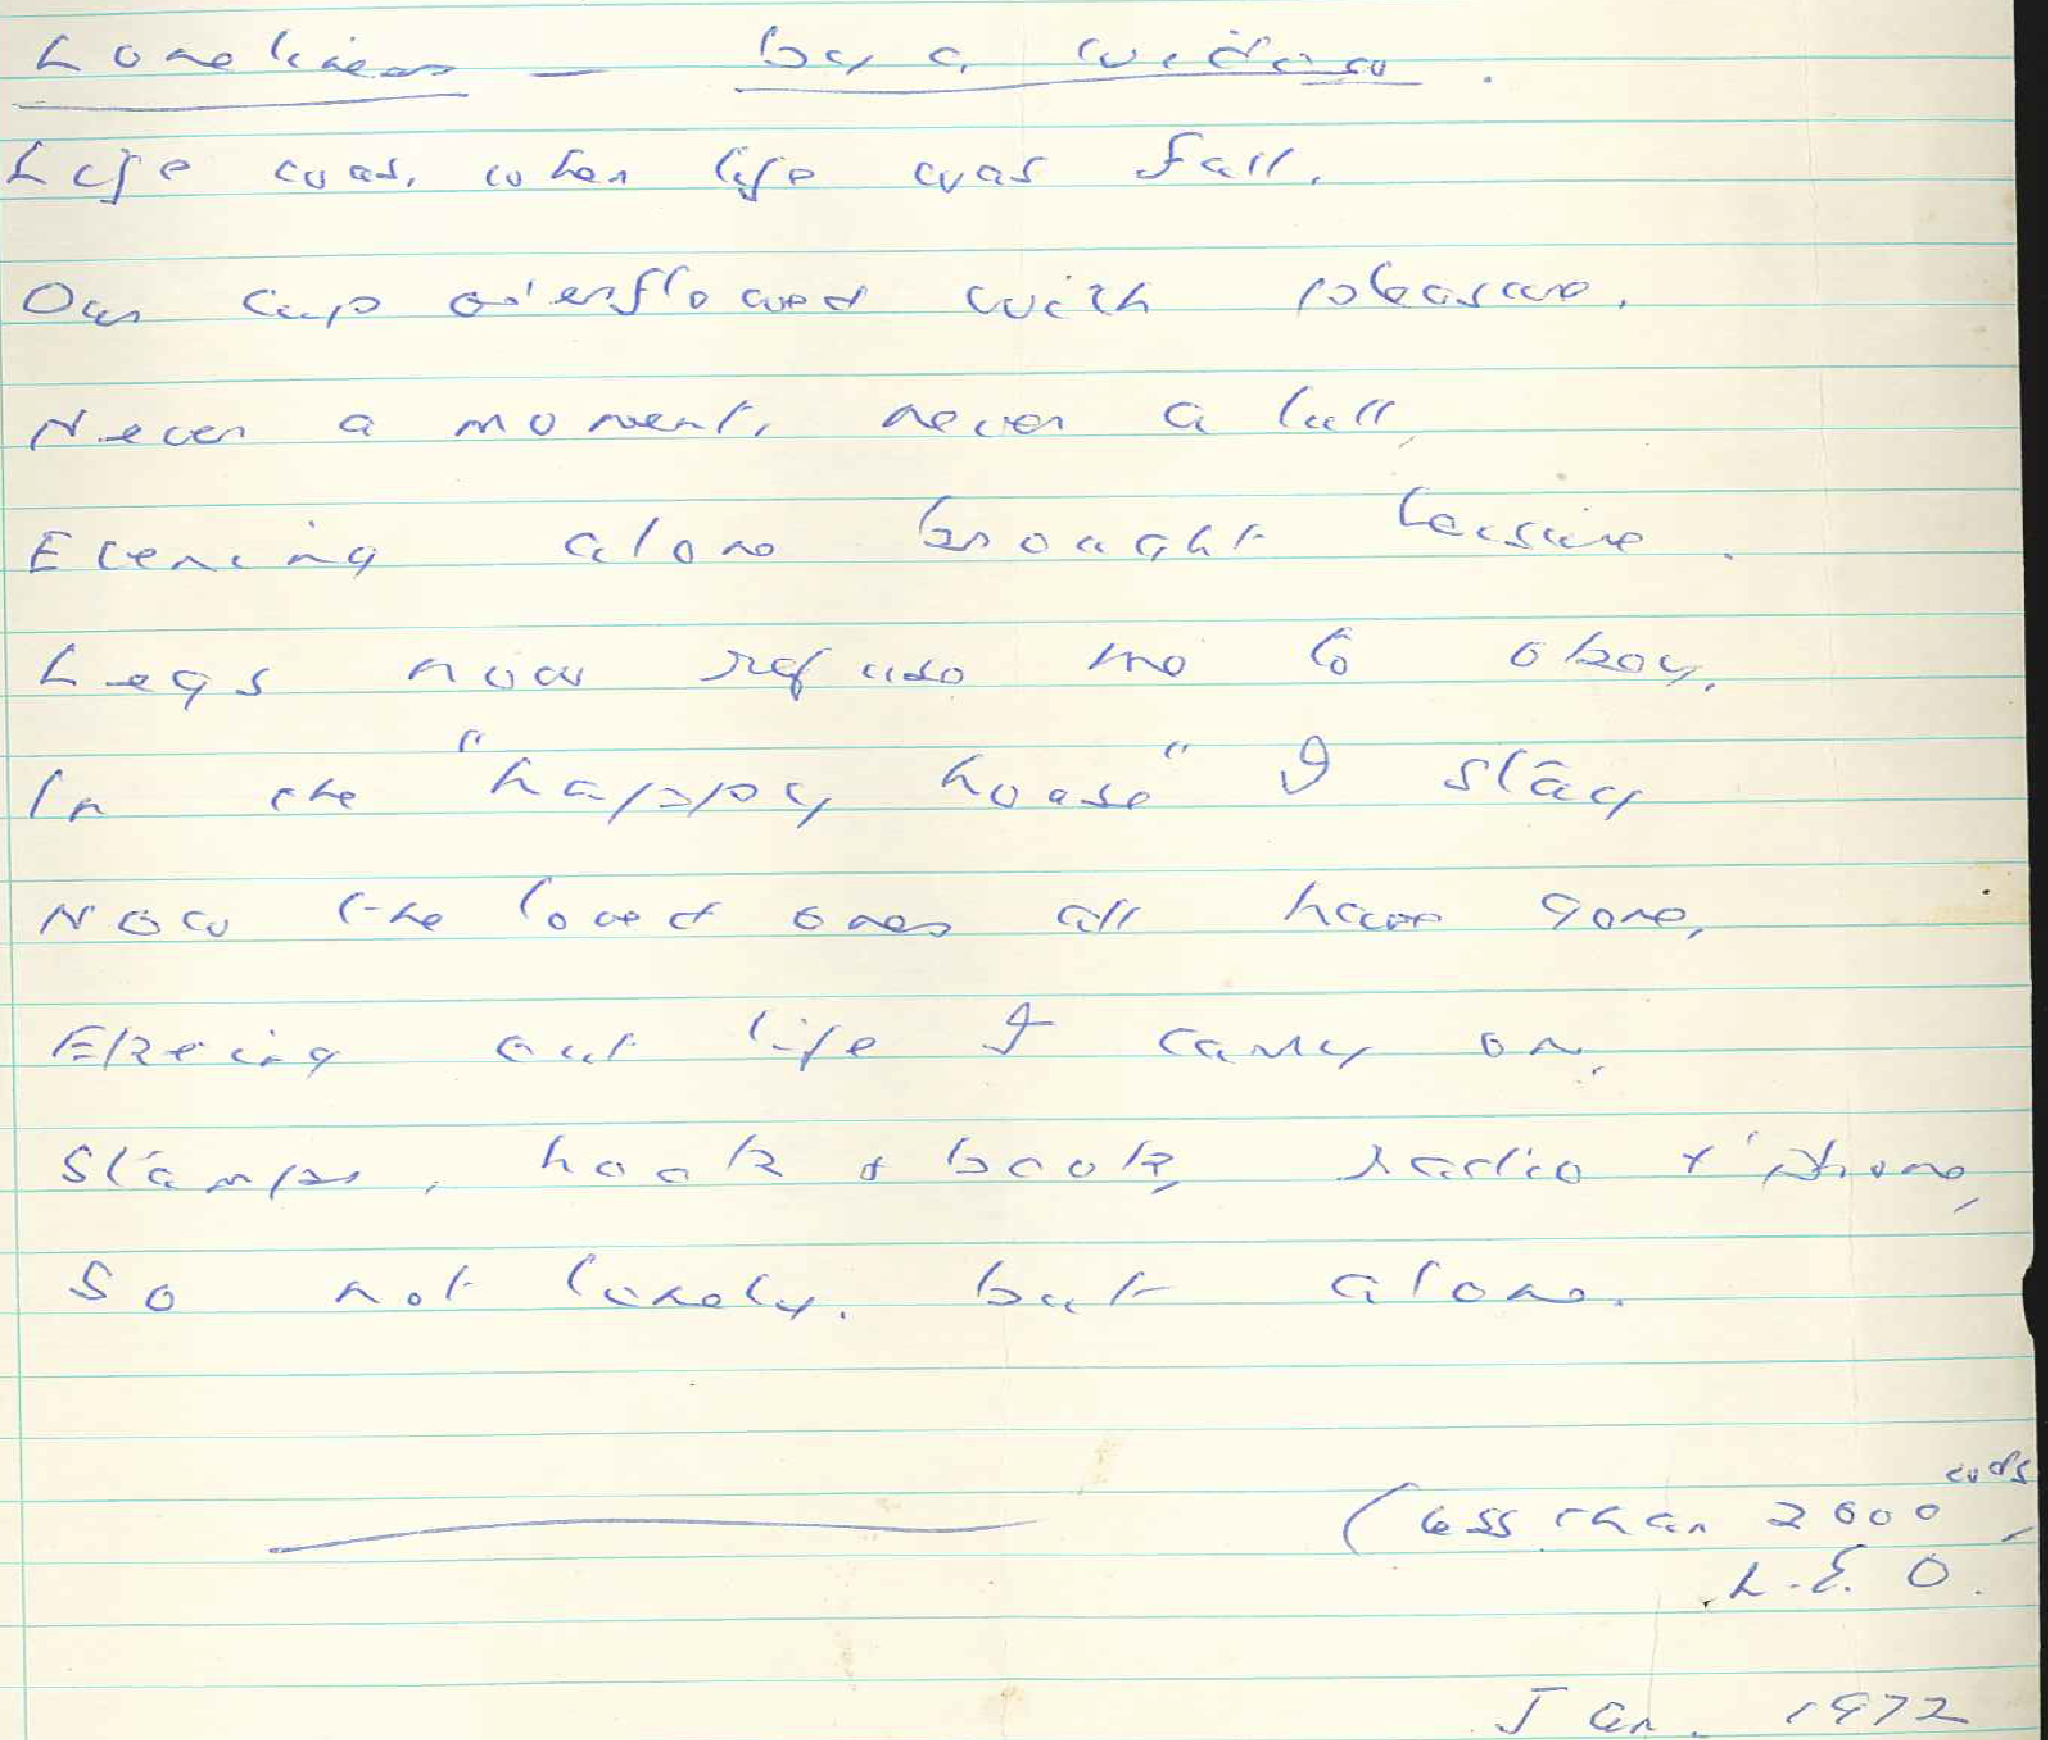 Loneliness — by a widow.
Life was, when life was full,
Our cup o'erflowed with pleasure.
Never a moment, never a lull,
Evening alone brought leisure.
Legs now refuse me to obey,
In the "happy house" I stay
Now the loved ones all have gone,
Ekeing out life I carry on,
Stamps, hook & book, radio & 'phone,
So not lonely, but alone.
(less than 2000 wds
L.E.O.
Jan. 1972